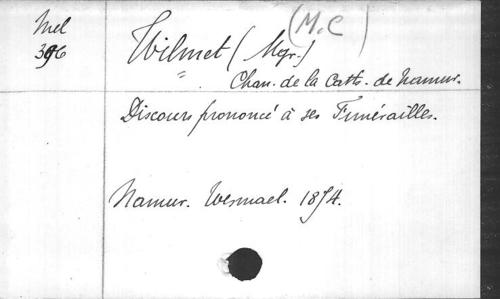 Mel
396
Wilmet (Mgr.) (M.C)
〃 Chan. de la Cath. de Namur.
Discours prononcé à ses Funérailles.
Namur. Wesmael. 1874.